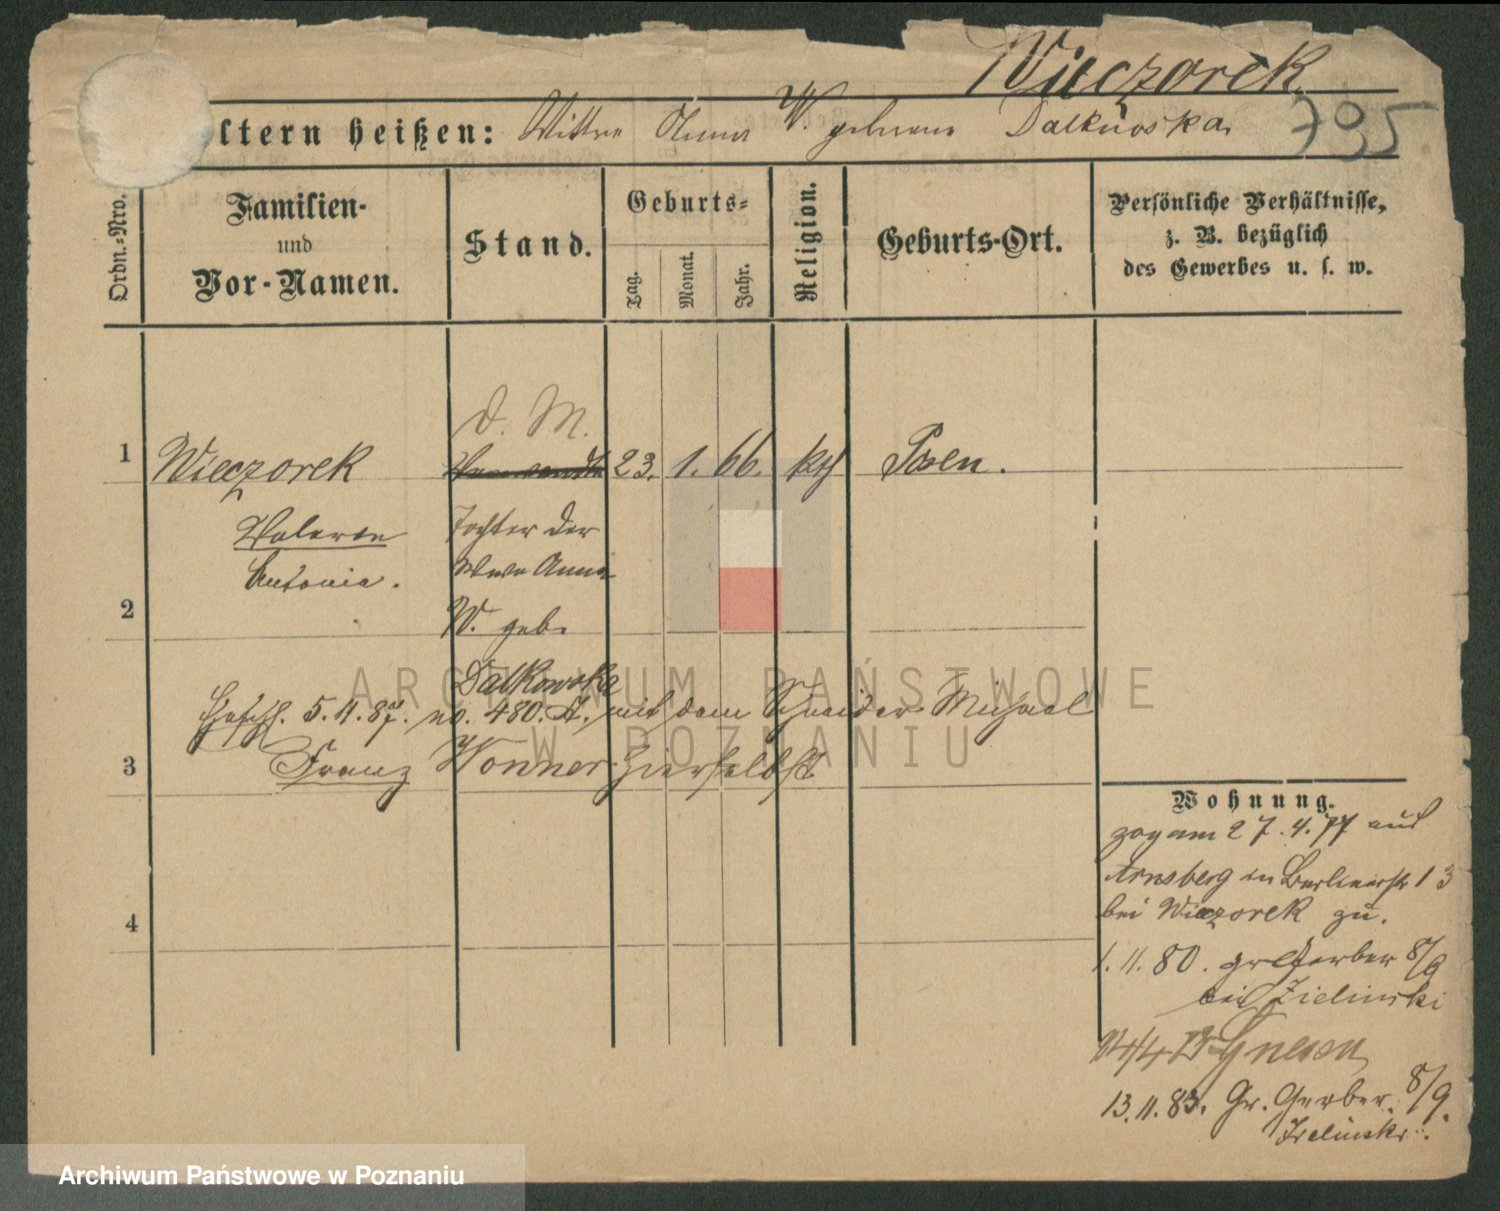 Wieczorek
795
ltern heißen: Wittwe Anna W. geborene Dalkowska
Ordn.-Nro.
Familien-
und
Vor-Namen.
Stand.
Geburts-
Tag.
Monat.
Jahr.
Religion.
Geburts-Ort.
Persönliche Verhältnisse,
z. B. bezüglich
des Gewerbes u. s. w.
d. M.
1 Wieczorek 23. 1. 66. kth Posen.
Antonia.
Tochter der
Wwe Anna
2 W. geb.
Dalkowska
5. 11. 87. no. 480. A. mit dem Schneider Michael
3 Franz Wonner hierselbst
4
Wohnung.
zog am 27. 4. 77 aus
Arnsberg in Berlinerstr 13
bei Wieczorek zu.
1. 11. 80. gr Gerber 8/9
bei Zielinski
Gnesen
13. 11. 83. Gr. Gerber. 8/9.
Zielinski.
ARCHIWUM PAŃSTWOWE
W POZNANIU
Archiwum Państwowe w Poznaniu